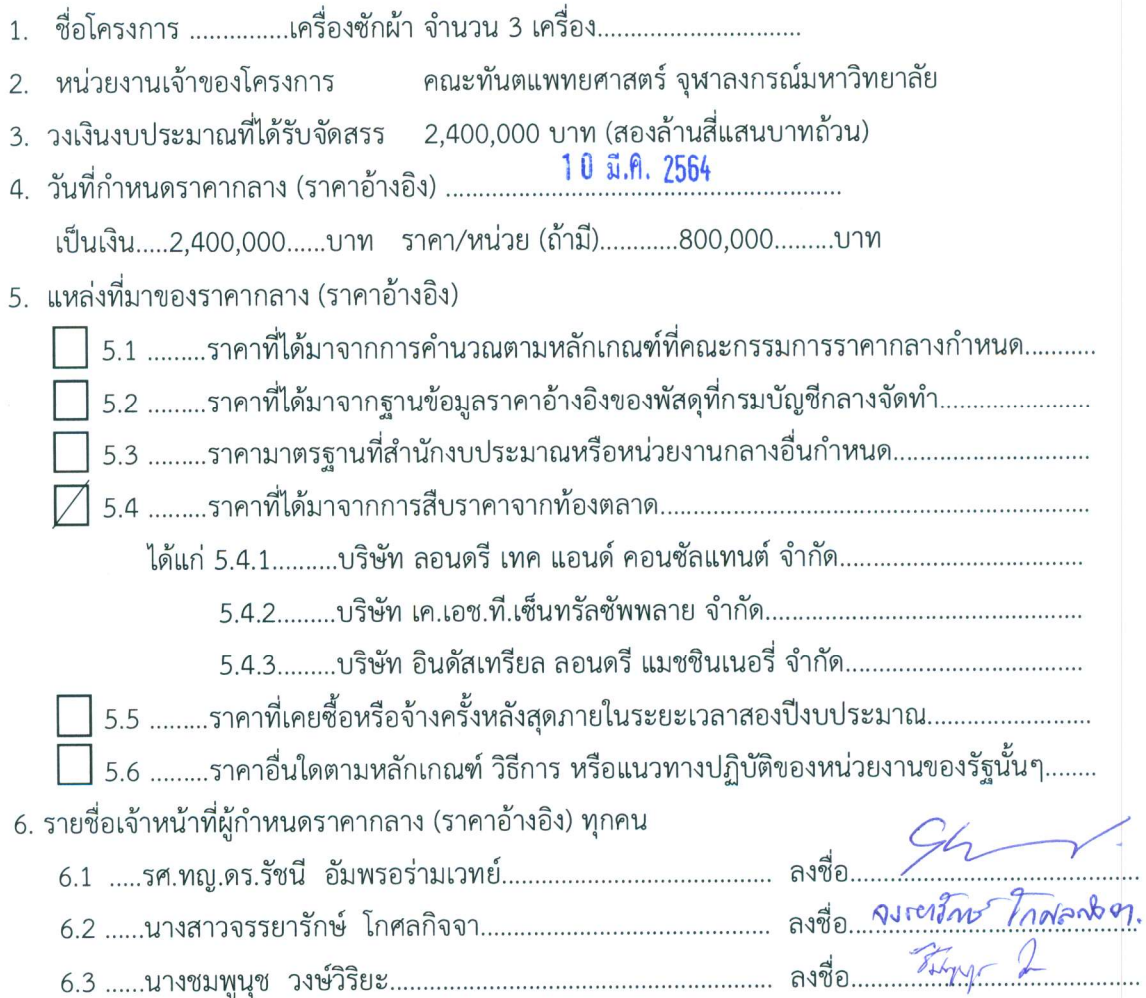 1. ชื่อโครงการ ...............เครื่องซักผ้า จำนวน 3 เครื่อง...............................
2. หน่วยงานเจ้าของโครงการ คณะทันตแพทยศาสตร์ จุฬาลงกรณ์มหาวิทยาลัย
3. วงเงินงบประมาณที่ได้รับจัดสรร 2,400,000 บาท (สองล้านสี่แสนบาทถ้วน)
4. วันที่กำหนดราคากลาง (ราคาอ้างอิง) ............10 มี.ค. 2564............
เป็นเงิน.....2,400,000......บาท ราคา/หน่วย (ถ้ามี)............800,000.........บาท
5. แหล่งที่มาของราคากลาง (ราคาอ้างอิง)
5.1 .........ราคาที่ได้มาจากการคำนวณตามหลักเกณฑ์ที่คณะกรรมการราคากลางกำหนด...........
5.2 .........ราคาที่ได้มาจากฐานข้อมูลราคาอ้างอิงของพัสดุที่กรมบัญชีกลางจัดทำ.......................
5.3 .........ราคามาตรฐานที่สำนักงบประมาณหรือหน่วยงานกลางอื่นกำหนด..............................
5.4 .........ราคาที่ได้มาจากการสืบราคาจากท้องตลาด.................................................................
ได้แก่ 5.4.1..........บริษัท ลอนดรี เทค แอนด์ คอนซัลแทนต์ จำกัด.....................................
5.4.2.........บริษัท เค.เอช.ที.เซ็นทรัลซัพพลาย จำกัด................................................
5.4.3.........บริษัท อินดัสเทรียล ลอนดรี แมชชินเนอรี่ จำกัด....................................
5.5 .........ราคาที่เคยซื้อหรือจ้างครั้งหลังสุดภายในระยะเวลาสองปีงบประมาณ.........................
5.6 .........ราคาอื่นใดตามหลักเกณฑ์ วิธีการ หรือแนวทางปฏิบัติของหน่วยงานของรัฐนั้นๆ........
6. รายชื่อเจ้าหน้าที่ผู้กำหนดราคากลาง (ราคาอ้างอิง) ทุกคน
6.1 .....รศ.ทญ.ดร.รัชนี อัมพรอร่ามเวทย์......................................... ลงชื่อ............................................
6.2 ......นางสาวจรรยารักษ์ โกศลกิจจา............................................ ลงชื่อ...จรรยารักษ์ โกศลกิจจา.
6.3 ......นางชมพูนุช วงษ์วิริยะ.......................................................... ลงชื่อ............................................